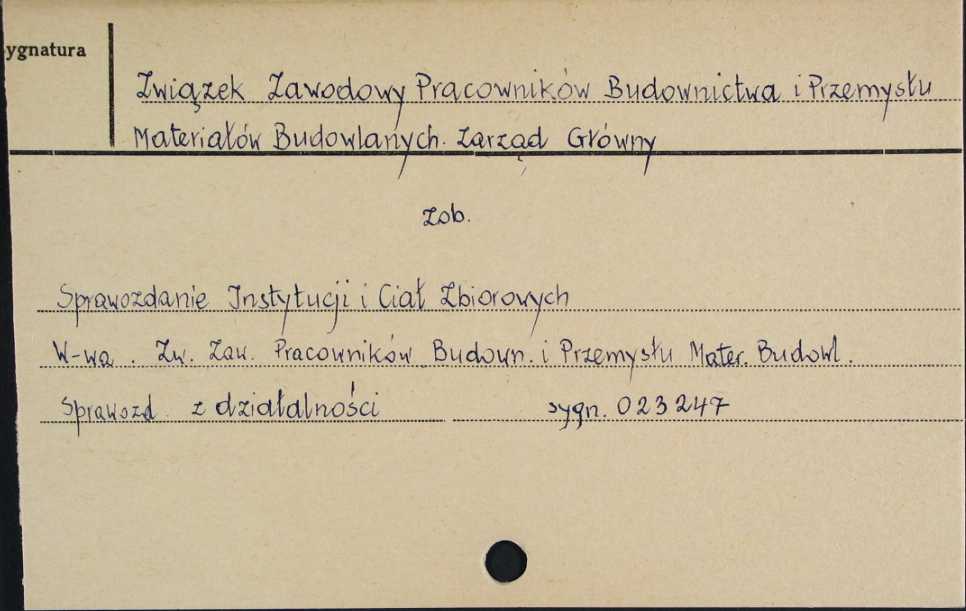 ygnatura
Związek Zawodowy Pracowników Budownictwa i Przemysłu
Materiałów Budowlanych. Zarząd Główny
Zob.
Sprawozdanie Instytucji i Ciał Zbiorowych
W-wa. Zw. Zaw. Pracowników Budown. i Przemysłu Mater. Budowl.
Sprawozd z działalności sygn. 023247